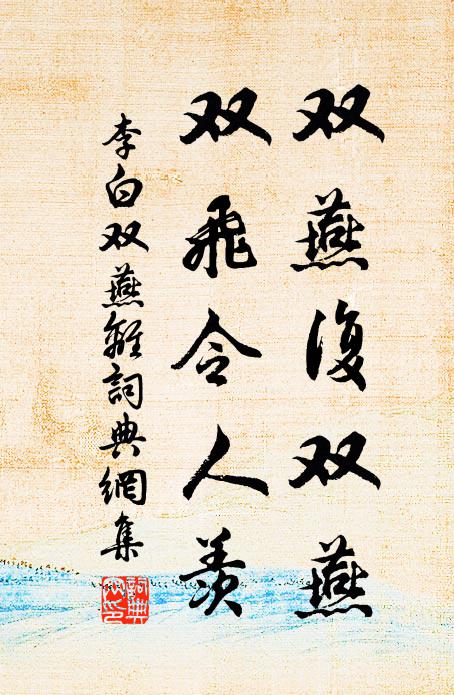 双燕復双燕
双飛令人羡
李白双燕離詞典網集